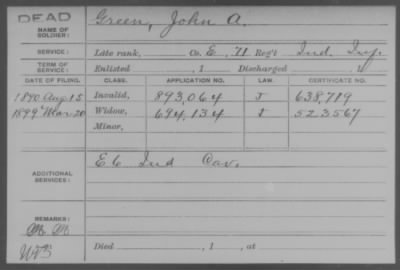 DEAD
NAME OF SOLDIER: Green, John A.
SERVICE: Late rank, Co. E, 71 Reg't Ind. Inf.
TERM OF SERVICE: Enlisted , 1 Discharged , 1
DATE OF FILING. CLASS. APPLICATION NO. LAW. CERTIFICATE NO.
1890 Aug 15 Invalid, 893,064 J 638,719
1899 Mar 20 Widow, 694,134 523567
Minor,
ADDITIONAL SERVICES: E 6 Ind Cav.
REMARKS:
Died , 1 , at